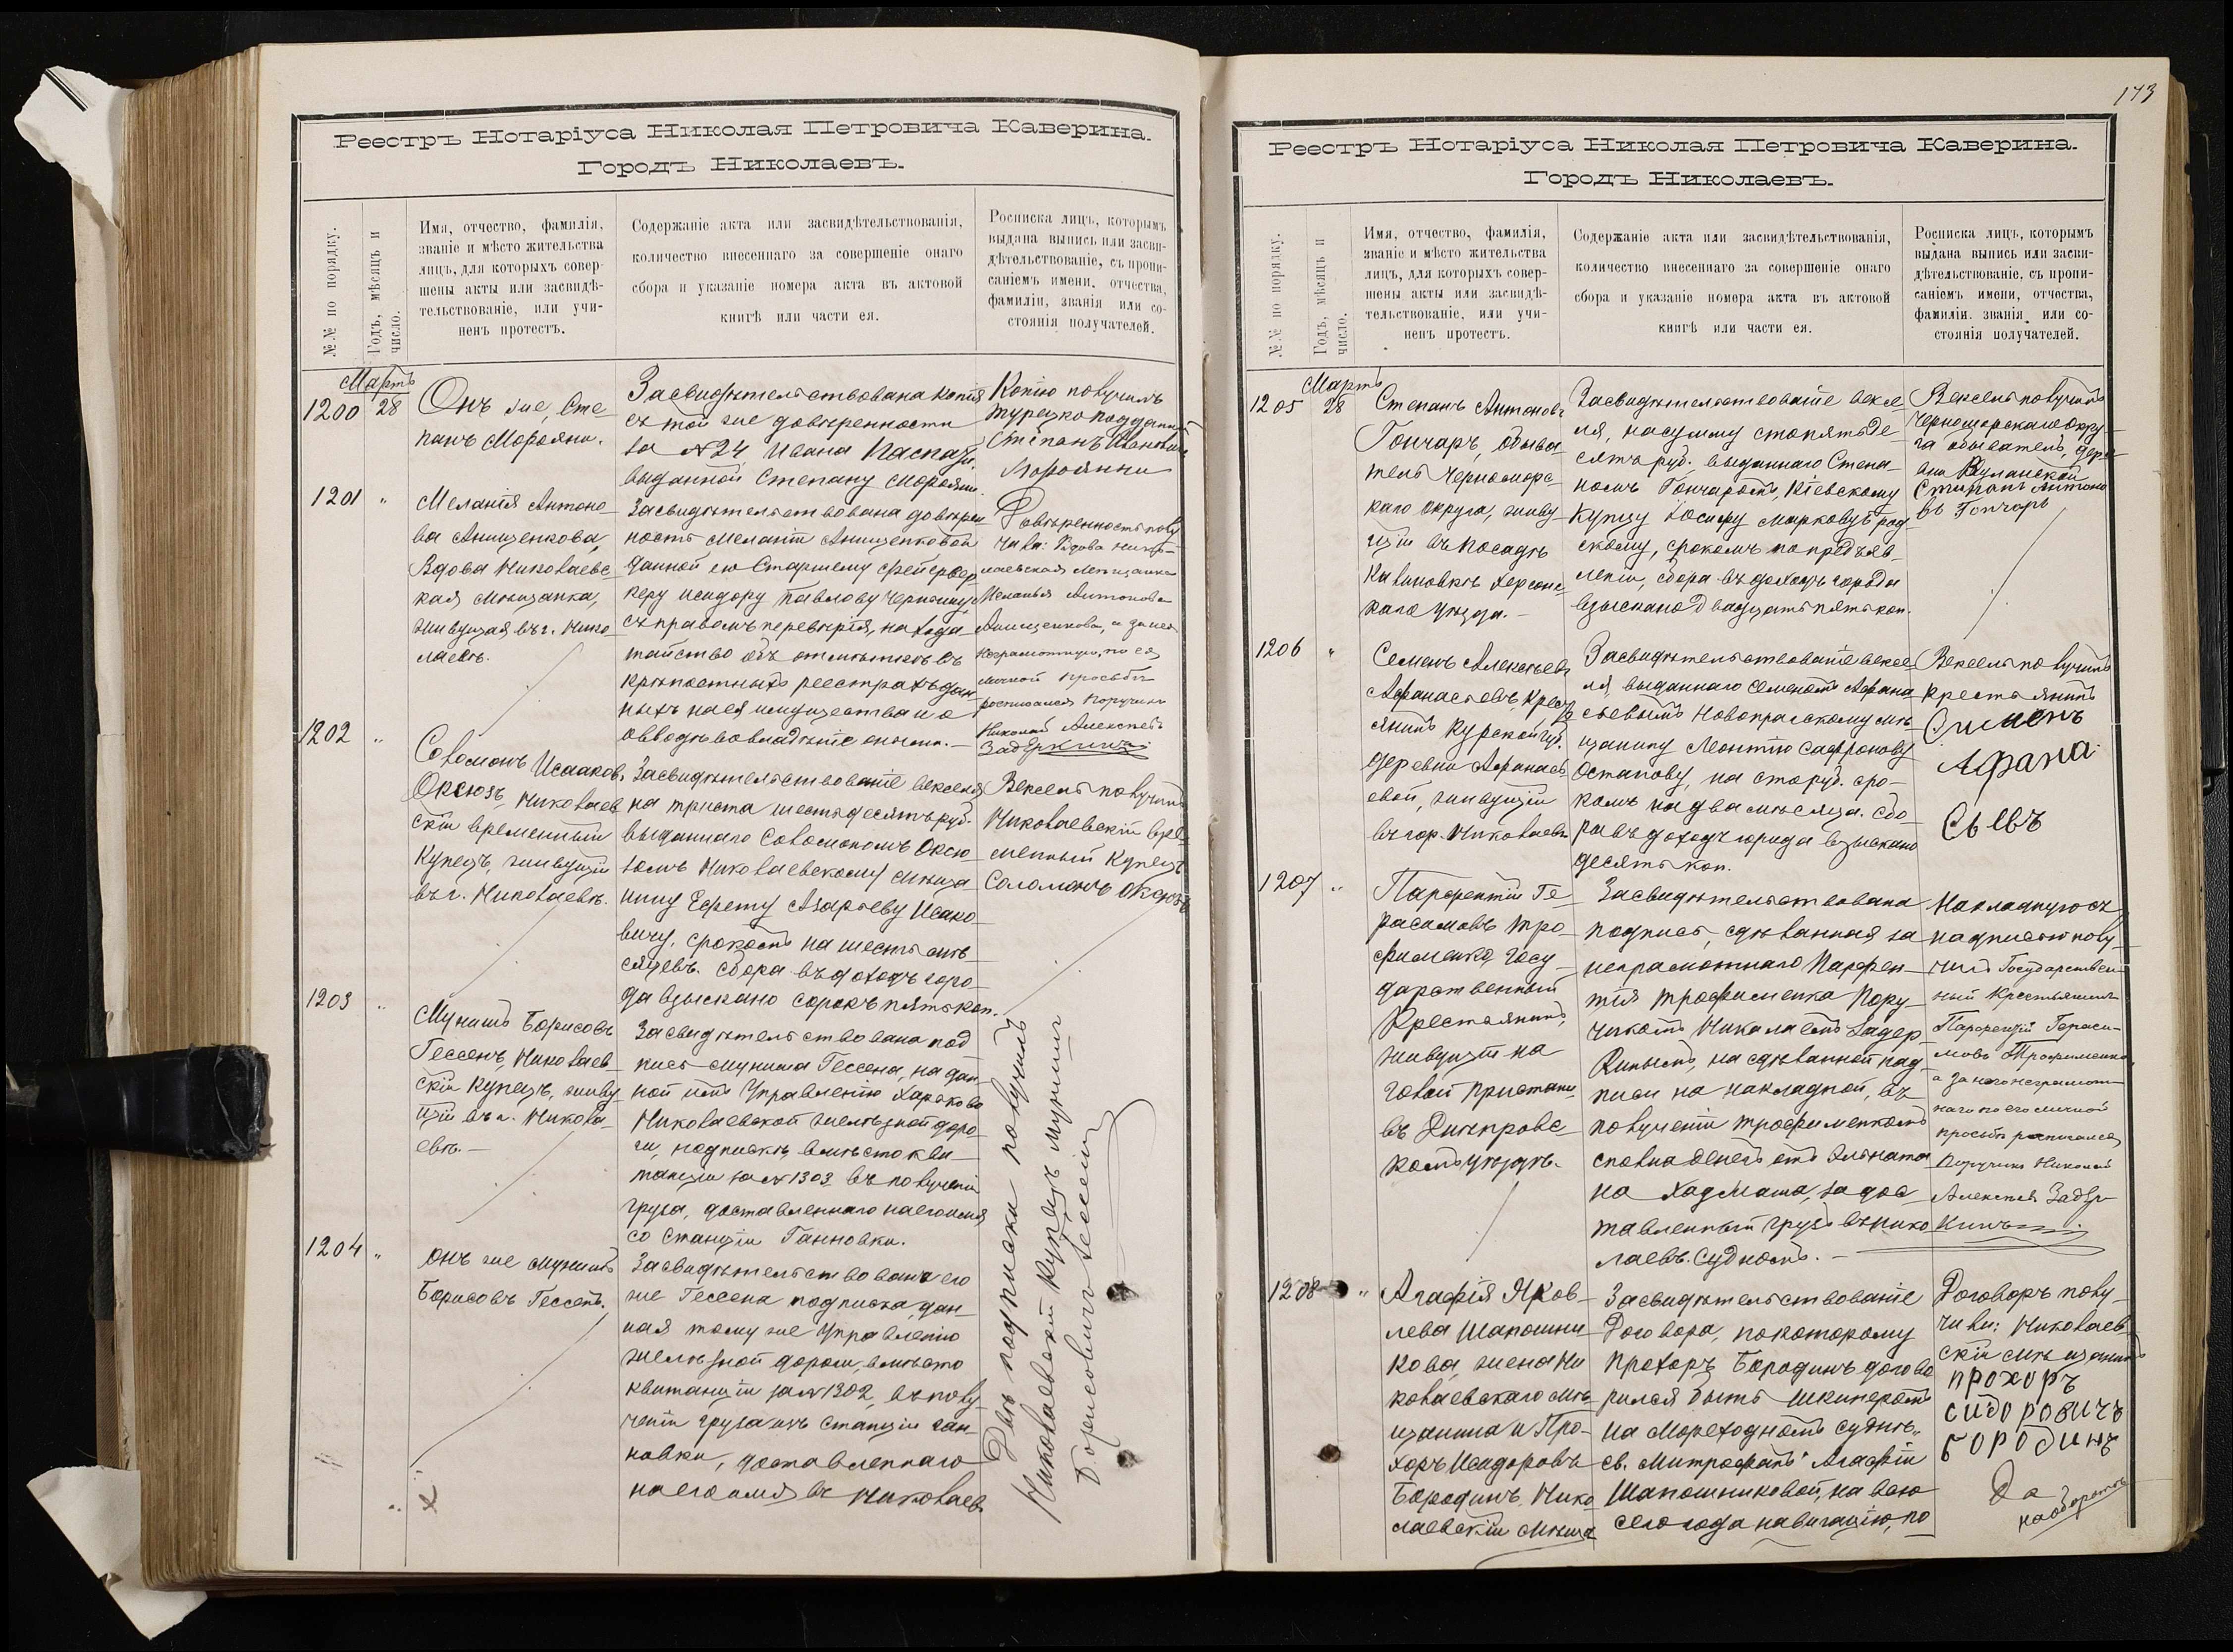 Реестръ Нотаріуса Николая Петровича Каверина.
Городъ Николаевъ.
№.№ по порядку.
Годъ, мѣсяцъ и
число.
Имя, отчество, фамилія,
званіе и мѣсто жительства
лицъ, для которыхъ совер-
шены акты или засвидѣ-
тельствованіе, или учи-
ненъ протестъ.
Содержаніе акта или засвидѣтельствованія,
количество внесеннаго за совершеніе онаго
сбора и указаніе номера акта въ актовой
книгѣ или части ея.
Росписка лицъ, которымъ
выдана выпись или засви-
дѣтельствованіе, съ пропи-
саніемъ имени, отчества,
фамиліи, званія или со-
стоянія получателей.
Мартъ
1200 28
Онъ же, Сте
панъ Морояни.
Засвидѣтельствована копія
съ той же довѣренности
за №24, Ивана Каспа
выданной Степану Морояни.
Копію получилъ
турецко подданный
Степанъ Ивановичъ
Морояни
1201 "
Меланія Антоно-
ва Анищенкова,
Вдова Николаевс
кая мѣщанка,
живущая въ г. Нико
лаевѣ.
Засвидѣтельствована довѣрен
ность Меланіи Анищенковой
данной ею Старшему фейервер
керу Исидору Павлову
съ правомъ перевѣрія, на хода
тайство объ отмѣткѣ въ
крѣпостныхъ реестрахъ дан
ныхъ на ея имущества и о
вводѣ во владѣніе онымъ.—
Довѣренность полу
чила: Вдова Нико-
лаевская Мѣщанка
Меланья Антонова
Анищенкова, а за нея
неграмотную, по ея
личной просьбѣ
росписался Поручикъ
Николай Алексѣевъ
Задеркинъ
1202 "
Соломонъ Исааковъ
Оксюзъ, Николаев
скій временный
Купецъ, живущій
въ г. Николаевѣ.
Засвидѣтельствованіе векселя
на триста шестьдесятъ руб.
выданнаго Соломономъ Оксю
зомъ Николаевскому мѣща
нину Ефрему Азарьеву Исако
вичу, срокомъ на шесть мѣ
сяцевъ. Сбора въ доходъ горо-
да взыскано сорокъ пять коп.
Вексель получилъ
Николаевскій вре-
менный Купецъ
Соломонъ Оксюзъ
1203 "
Мунишъ Борисовъ
Гессенъ, Николаев
скій купецъ, живу
щій въ г. Никола-
евѣ.—
Засвидѣтельствована под
пись Муниша Гессена, на дан
ной имъ Управленію Харьково
Николаевской желѣзной доро-
ги, подпискѣ, вмѣсто кви-
танціи за №1303 въ полученіи
груза, доставленнаго на его имя
со станціи Ганновки.
1204 "
Онъ же Мунишъ
Борисовъ Гессенъ.
Засвидѣтельствована его
же Гессена подписка, дан-
ная тому же Управленію
желѣзной дороги, вмѣсто
квитанціи за №1302, въ полу-
ченіи груза изъ станціи Ган-
новки, доставленнаго
на его имя въ Николаевъ
Двѣ подписки получилъ
Николаевскій Купецъ Мунишъ
Борисовичъ Гессенъ
173
Реестръ Нотаріуса Николая Петровича Каверина.
Городъ Николаевъ.
№.№ по порядку.
Годъ, мѣсяцъ и
число.
Имя, отчество, фамилія,
званіе и мѣсто жительства
лицъ, для которыхъ совер-
шены акты или засвидѣ-
тельствованіе, или учи-
ненъ протестъ.
Содержаніе акта или засвидѣтельствованія,
количество внесеннаго за совершеніе онаго
сбора и указаніе номера акта въ актовой
книгѣ или части ея.
Росписка лицъ, которымъ
выдана выпись или засви-
дѣтельствованіе, съ пропи-
саніемъ имени, отчества,
фамиліи, званія или со-
стоянія получателей.
Мартъ
1205 28
Степанъ Антоновъ
Гончаръ, обыва
тель Черноморс-
каго округа, живу-
щій въ посадѣ
Калиновкѣ Херсонс-
каго уѣзда.—
Засвидѣтельствованіе вексе-
ля, на сумму сто пятьде
сятъ руб. выданнаго Степа-
номъ Гончаромъ, Кіевскому
купцу Іосифу Марковуград
скому, срокомъ по предъяв-
леніи, сбора въ доходъ города
взыскано двадцать пять коп.
Вексель получилъ
Черноморскаго окру-
га обыватель, дере-
вни
Степанъ Антоно
въ Гончаръ
1206 "
Семенъ Алексѣевъ
Афанасьевъ, Кресть
янинъ Курской губ.
деревни Афанась
евой, живущій
въ гор. Николаевѣ
Засвидѣтельствованіе вексе-
ля, выданнаго Семеномъ Афана
сьевымъ Новопражскому мѣ
щанину Леонтію Сафронову
Остапову, на сто руб. сро-
комъ на два мѣсяца. Сбо
ра въ доходъ города взыскано
десять коп.
Вексель получилъ
крестьянинъ
Сименъ
Афана
сьевъ
1207 "
Парфентій Ге-
расимовъ Тро-
фименко, Госу-
дарственный
Крестьянинъ,
живущій на
Голой Пристани
въ Днѣпровс-
комъ уѣздѣ.
Засвидѣтельствована
подпись, сдѣланная за
неграмотнаго Парфен-
тія Трофименка Пору-
чикомъ Николаемъ Задер
кинымъ, на сдѣланной над-
писи на накладной, въ
полученіи Трофименкомъ
сполна денегъ отъ
на Хаджаша, за дос-
тавленный грузъ въ Нико
лаевъ судномъ.—
Накладную съ
надписью полу-
чилъ Государствен
ный Крестьянинъ
Парфентій Гераси-
мовъ Трофименко,
а за него неграмот
наго по его личной
просьбѣ росписался
Поручикъ Николай
Алексѣевъ Задер
кинъ
1208 "
Агафія Яков-
лева Шапошни
кова, жена Ни
колаевскаго мѣ
щанина и Про-
хоръ Исидоровъ
Бородинъ, Нико
лаевскій мѣща
Засвидѣтельствованіе
Договора, по которому
Прохоръ Бородинъ догово
рился быть шкиперомъ
на мореходномъ суднѣ „
св. Митрофанъ" Агафіи
Шапошниковой, на всю
сего года навигацію, по
Договоръ полу-
чили: Николаев-
скій мѣщанинъ
прохоръ
сидоровичъ
бородинъ
Да
наоборотѣ